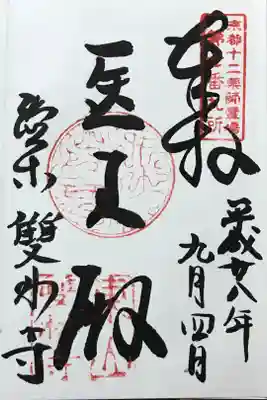 京都十二薬師霊場
第七番札所
奉拝
平成廿八年
九月四日
医王殿
雙林寺